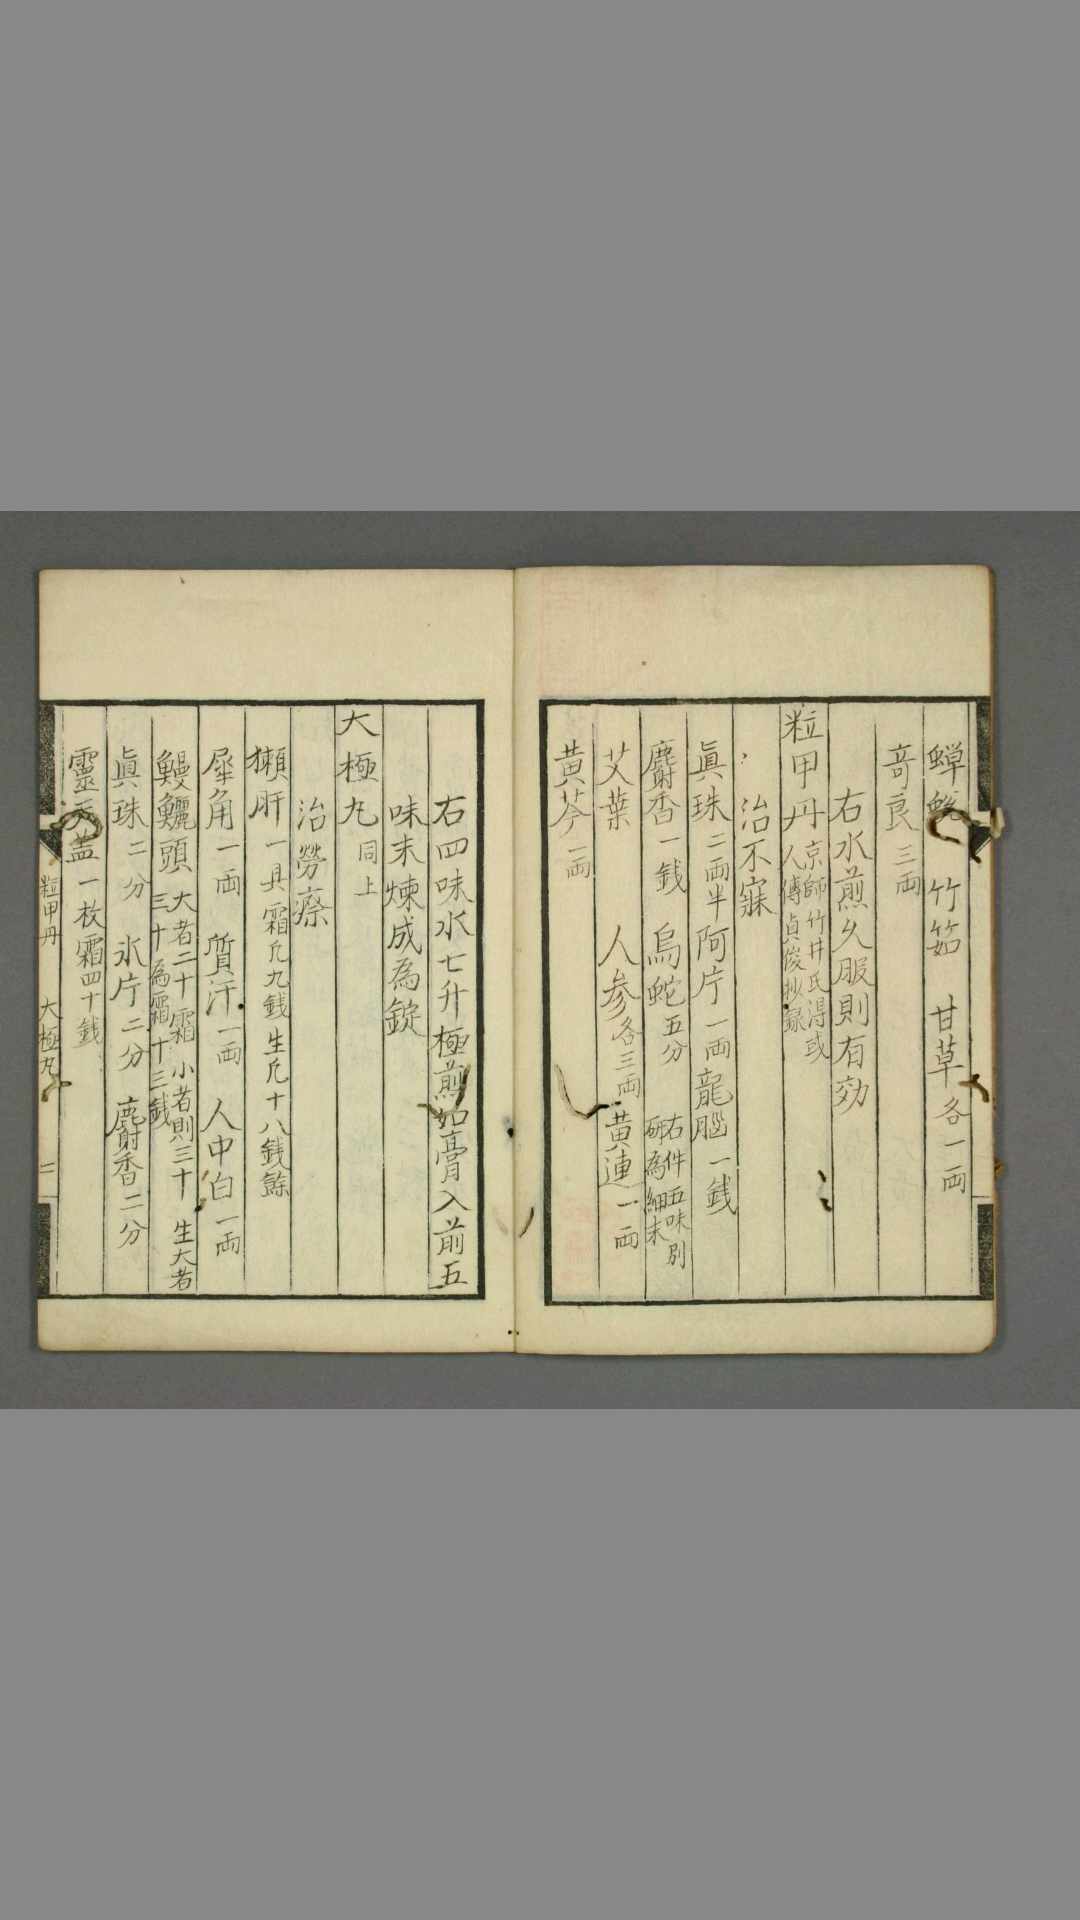 蝉蛻　竹筎　甘草各一両
奇良三両
右水煎久服則有効
粒甲丹京師竹井氏得或人傳貞俊抄録
治不寐
眞珠二両半阿片一両龍腦一銭
麝香一銭　烏蛇五分右件五味別研為細末
艾葉　人参各三両黄連一両
黄芩一両
右四味水七升極煎如膏入前五
味末煉成為錠
大極丸同上
治勞瘵
獺肝一具霜凢九銭生凢十八銭餘
犀角一両　質汗一両　人中白一両
鰻鱺頭大者二十霜小者則三十生大者三十為霜十三銭
眞珠二分　氷片二分　麝香二分
靈天盖一枚霜四十銭
粒甲丹　大極丸　二